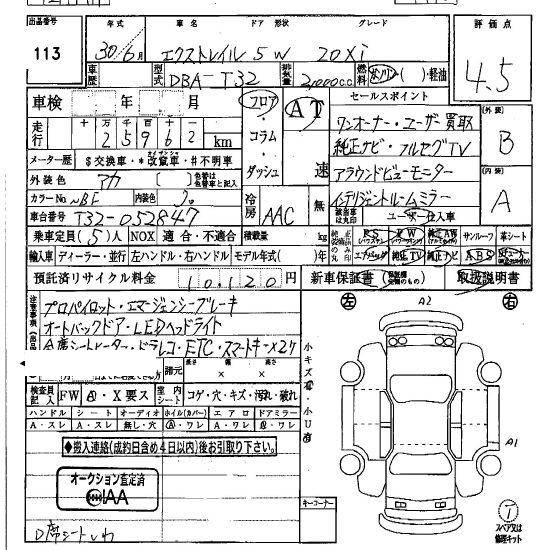 出品番号 年式 車名 ドア 形状 グレード 評価点
113 30/6月 エクストレイル 5 W 20Xi 4.5
車歴 型式 DBA-T32 排気量 2,000c.c. 燃料 ガソリン・( )・軽油
車検 年 月 フロア・コラム・ダッシュ AT 速
セールスポイント
ワンオーナー・ユーザー買取
純正ナビ・フルセグTV
アラウンドビューモニター
インテリジェントルームミラー
外装 B
内装 A
走行 十万千百十 25962 km
メーター歴 $交換車・*改竄車・#不明車
外装色 アカ [ ] 色替の場合は色替車と記入
カラーNo. NBF 内装色 クロ
冷房 AAC 無 該当車は丸印 ユーザー仕入車
車台番号 T32-052847
乗車定員(5)人 NOX 適合・不適合 積載量 kg
PS PW 純正AW サンルーフ 革シート
輸入車 ディーラー・並行 左ハンドル・右ハンドル モデル年式( )年 エアバッグ 純正TV 純正ナビ ABS
預託済リサイクル料金 10,120円 新車保証書 取扱説明書
注意事項
プロパイロット・エマージェンシーブレーキ
オートバックドア・LEDヘッドライト
全席シートヒーター・ドラレコ・ETC・スマートキー×2ケ
諸元 長さ 幅 高さ × ×
検査員記入 FW A・X要ス 室内シート コゲ・穴・キズ・汚れ・破れ
ハンドル シート オーディオ ホイル(カバー) エアロ ドアミラー
A・スレ A・スレ 無し・穴 A・ワレ A・ワレ A・ワレ
◆搬入連絡(成約日含め4日以内)後お引取り下さい。
オークション査定済
IAA
D席シートシワ
小キズ有・小U有
キーコーナー
左 A2 右
A1
1
スペア又は修理キット